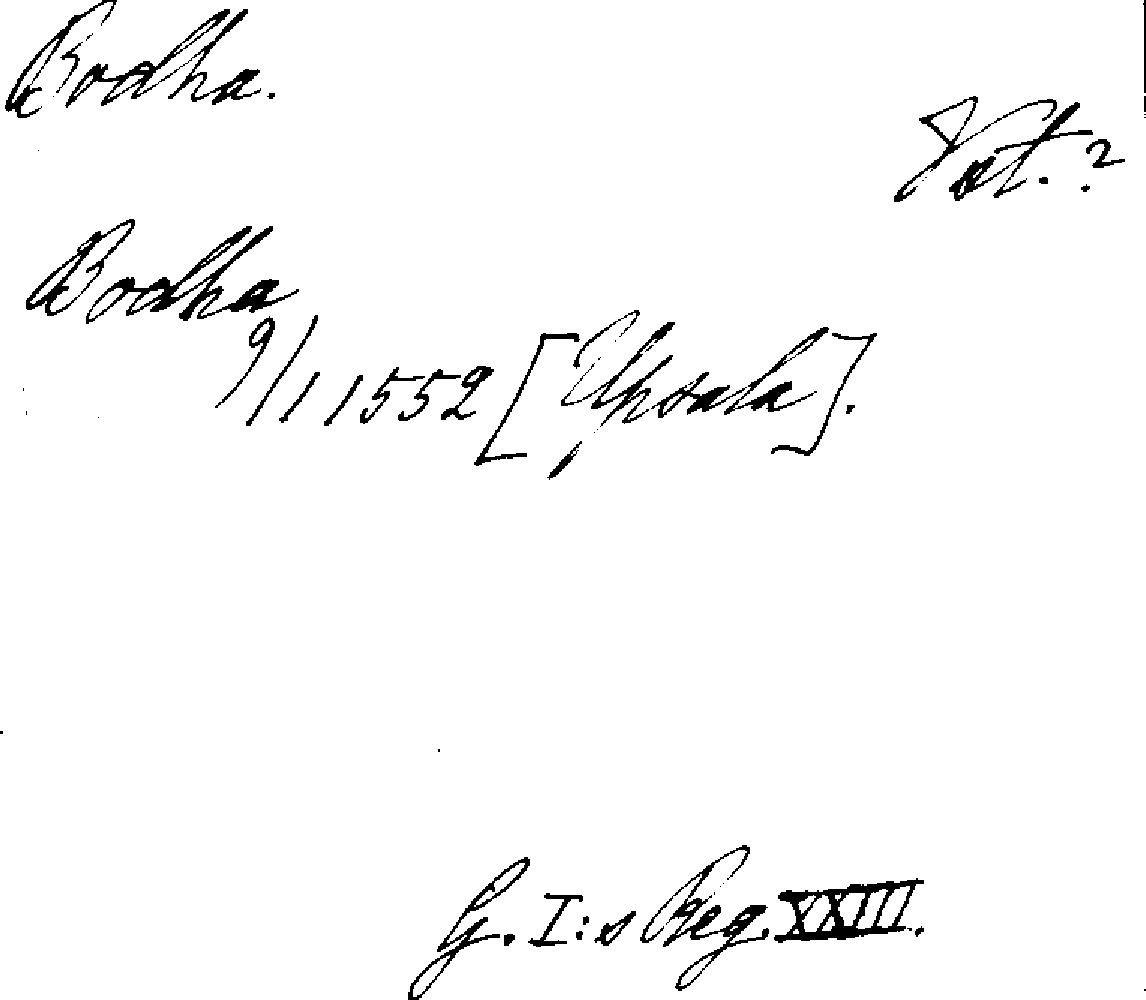 Bodha.
Vst.?
Bodha
9/1 1552 [Upsala].
G. I:s Reg. XXIII.